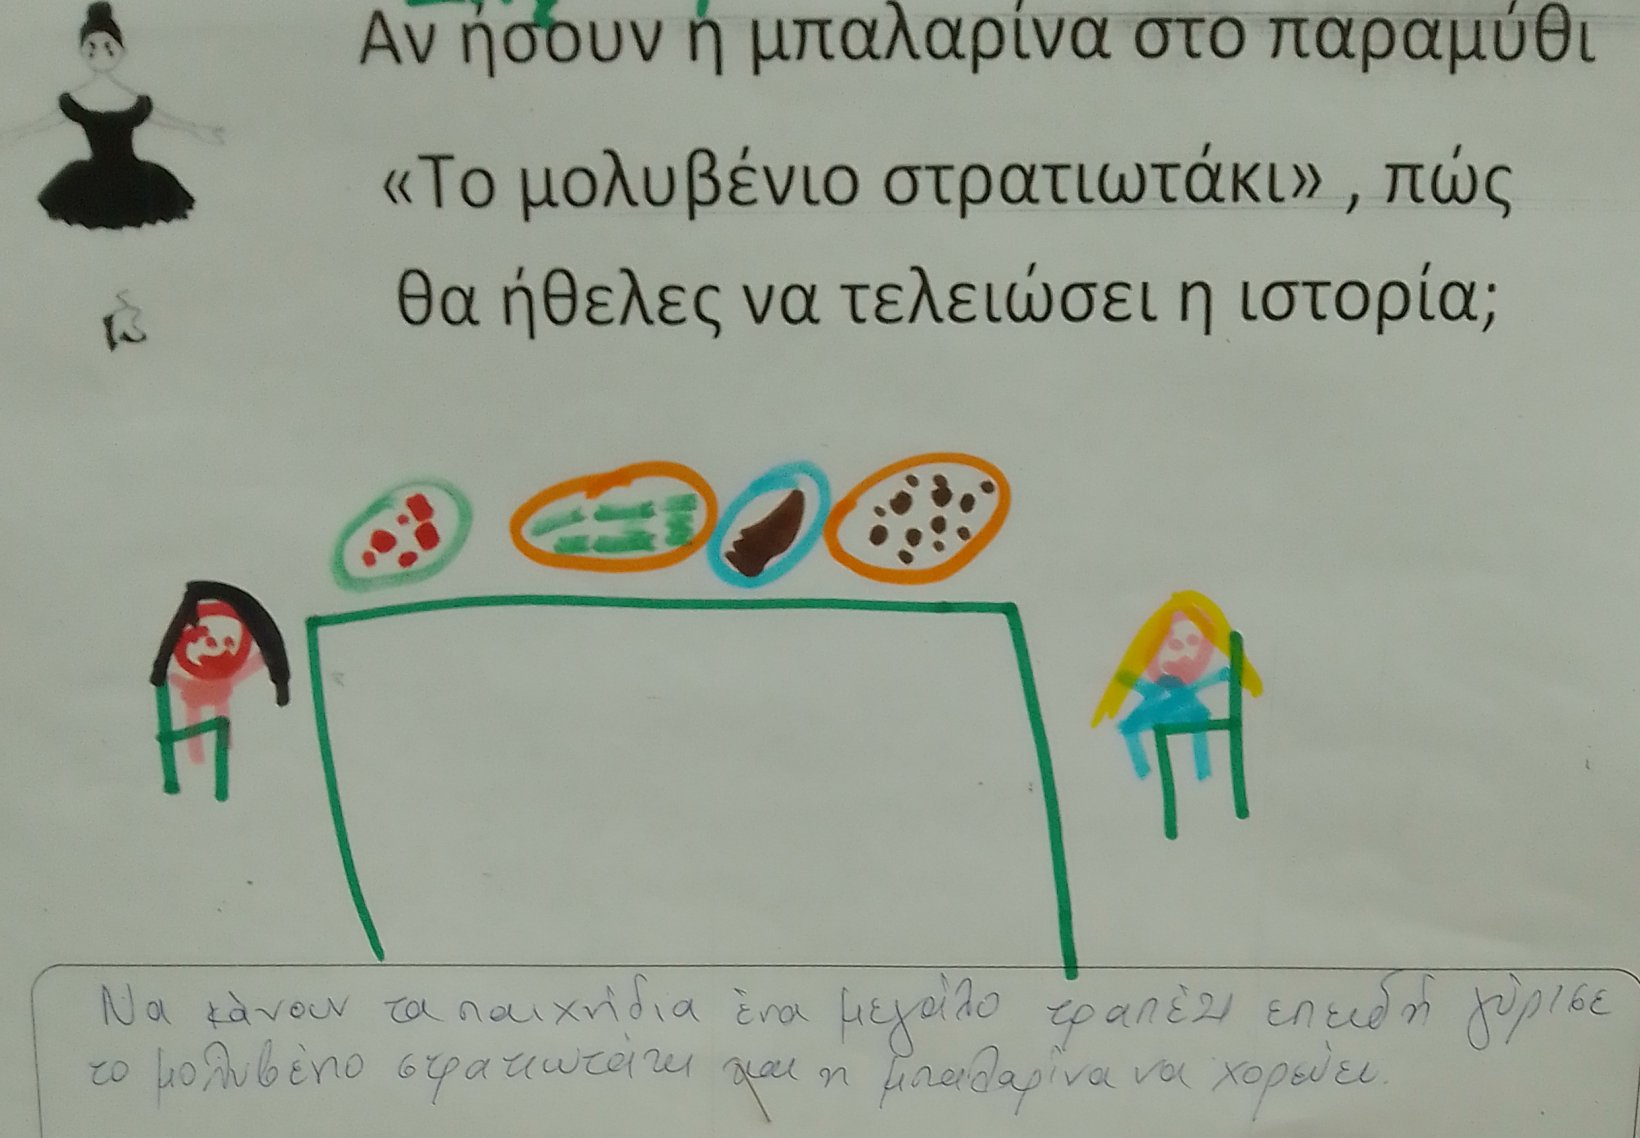 Αν ήσουν η μπαλαρίνα στο παραμύθι
«Το μολυβένιο στρατιωτάκι» , πώς
θα ήθελες να τελειώσει η ιστορία;
Να κάνουν τα παιχνίδια ένα μεγάλο τραπέζι επειδή γύρισε
το μολυβένιο στρατιωτάκι και η μπαλαρίνα να χορεύει.